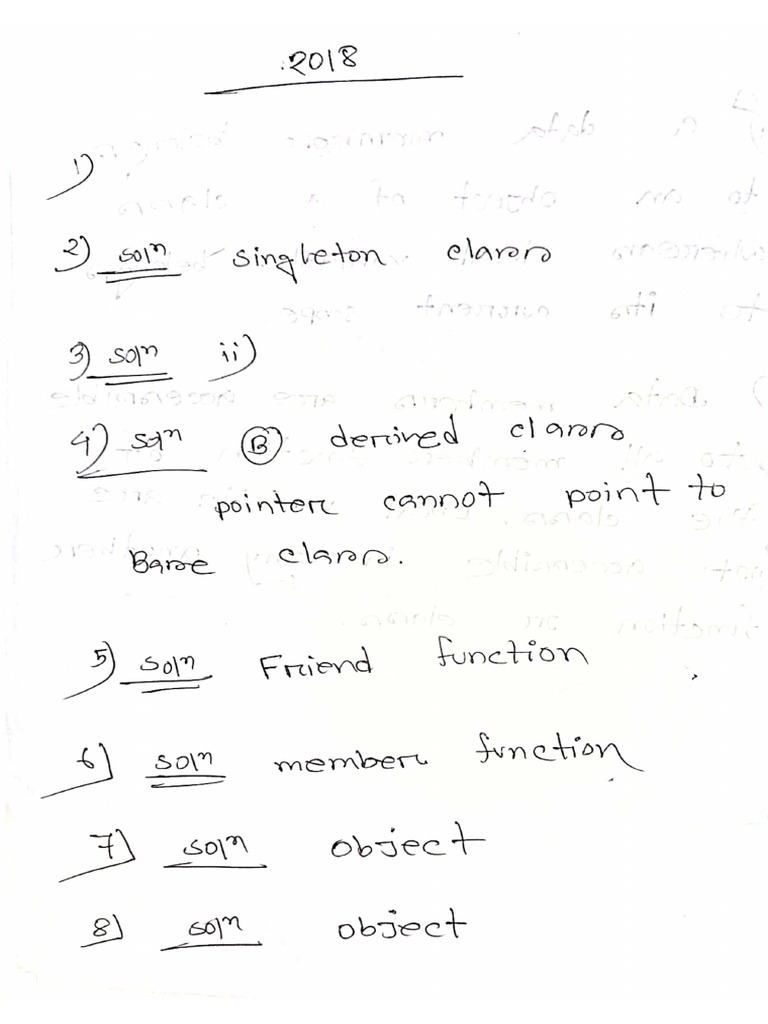 2018
1)
2) soln singleton class
3) soln ii)
4) soln (B) derived class
pointer cannot point to
Base class.
5) soln Friend function
6) soln member function
7) soln object
8) soln object